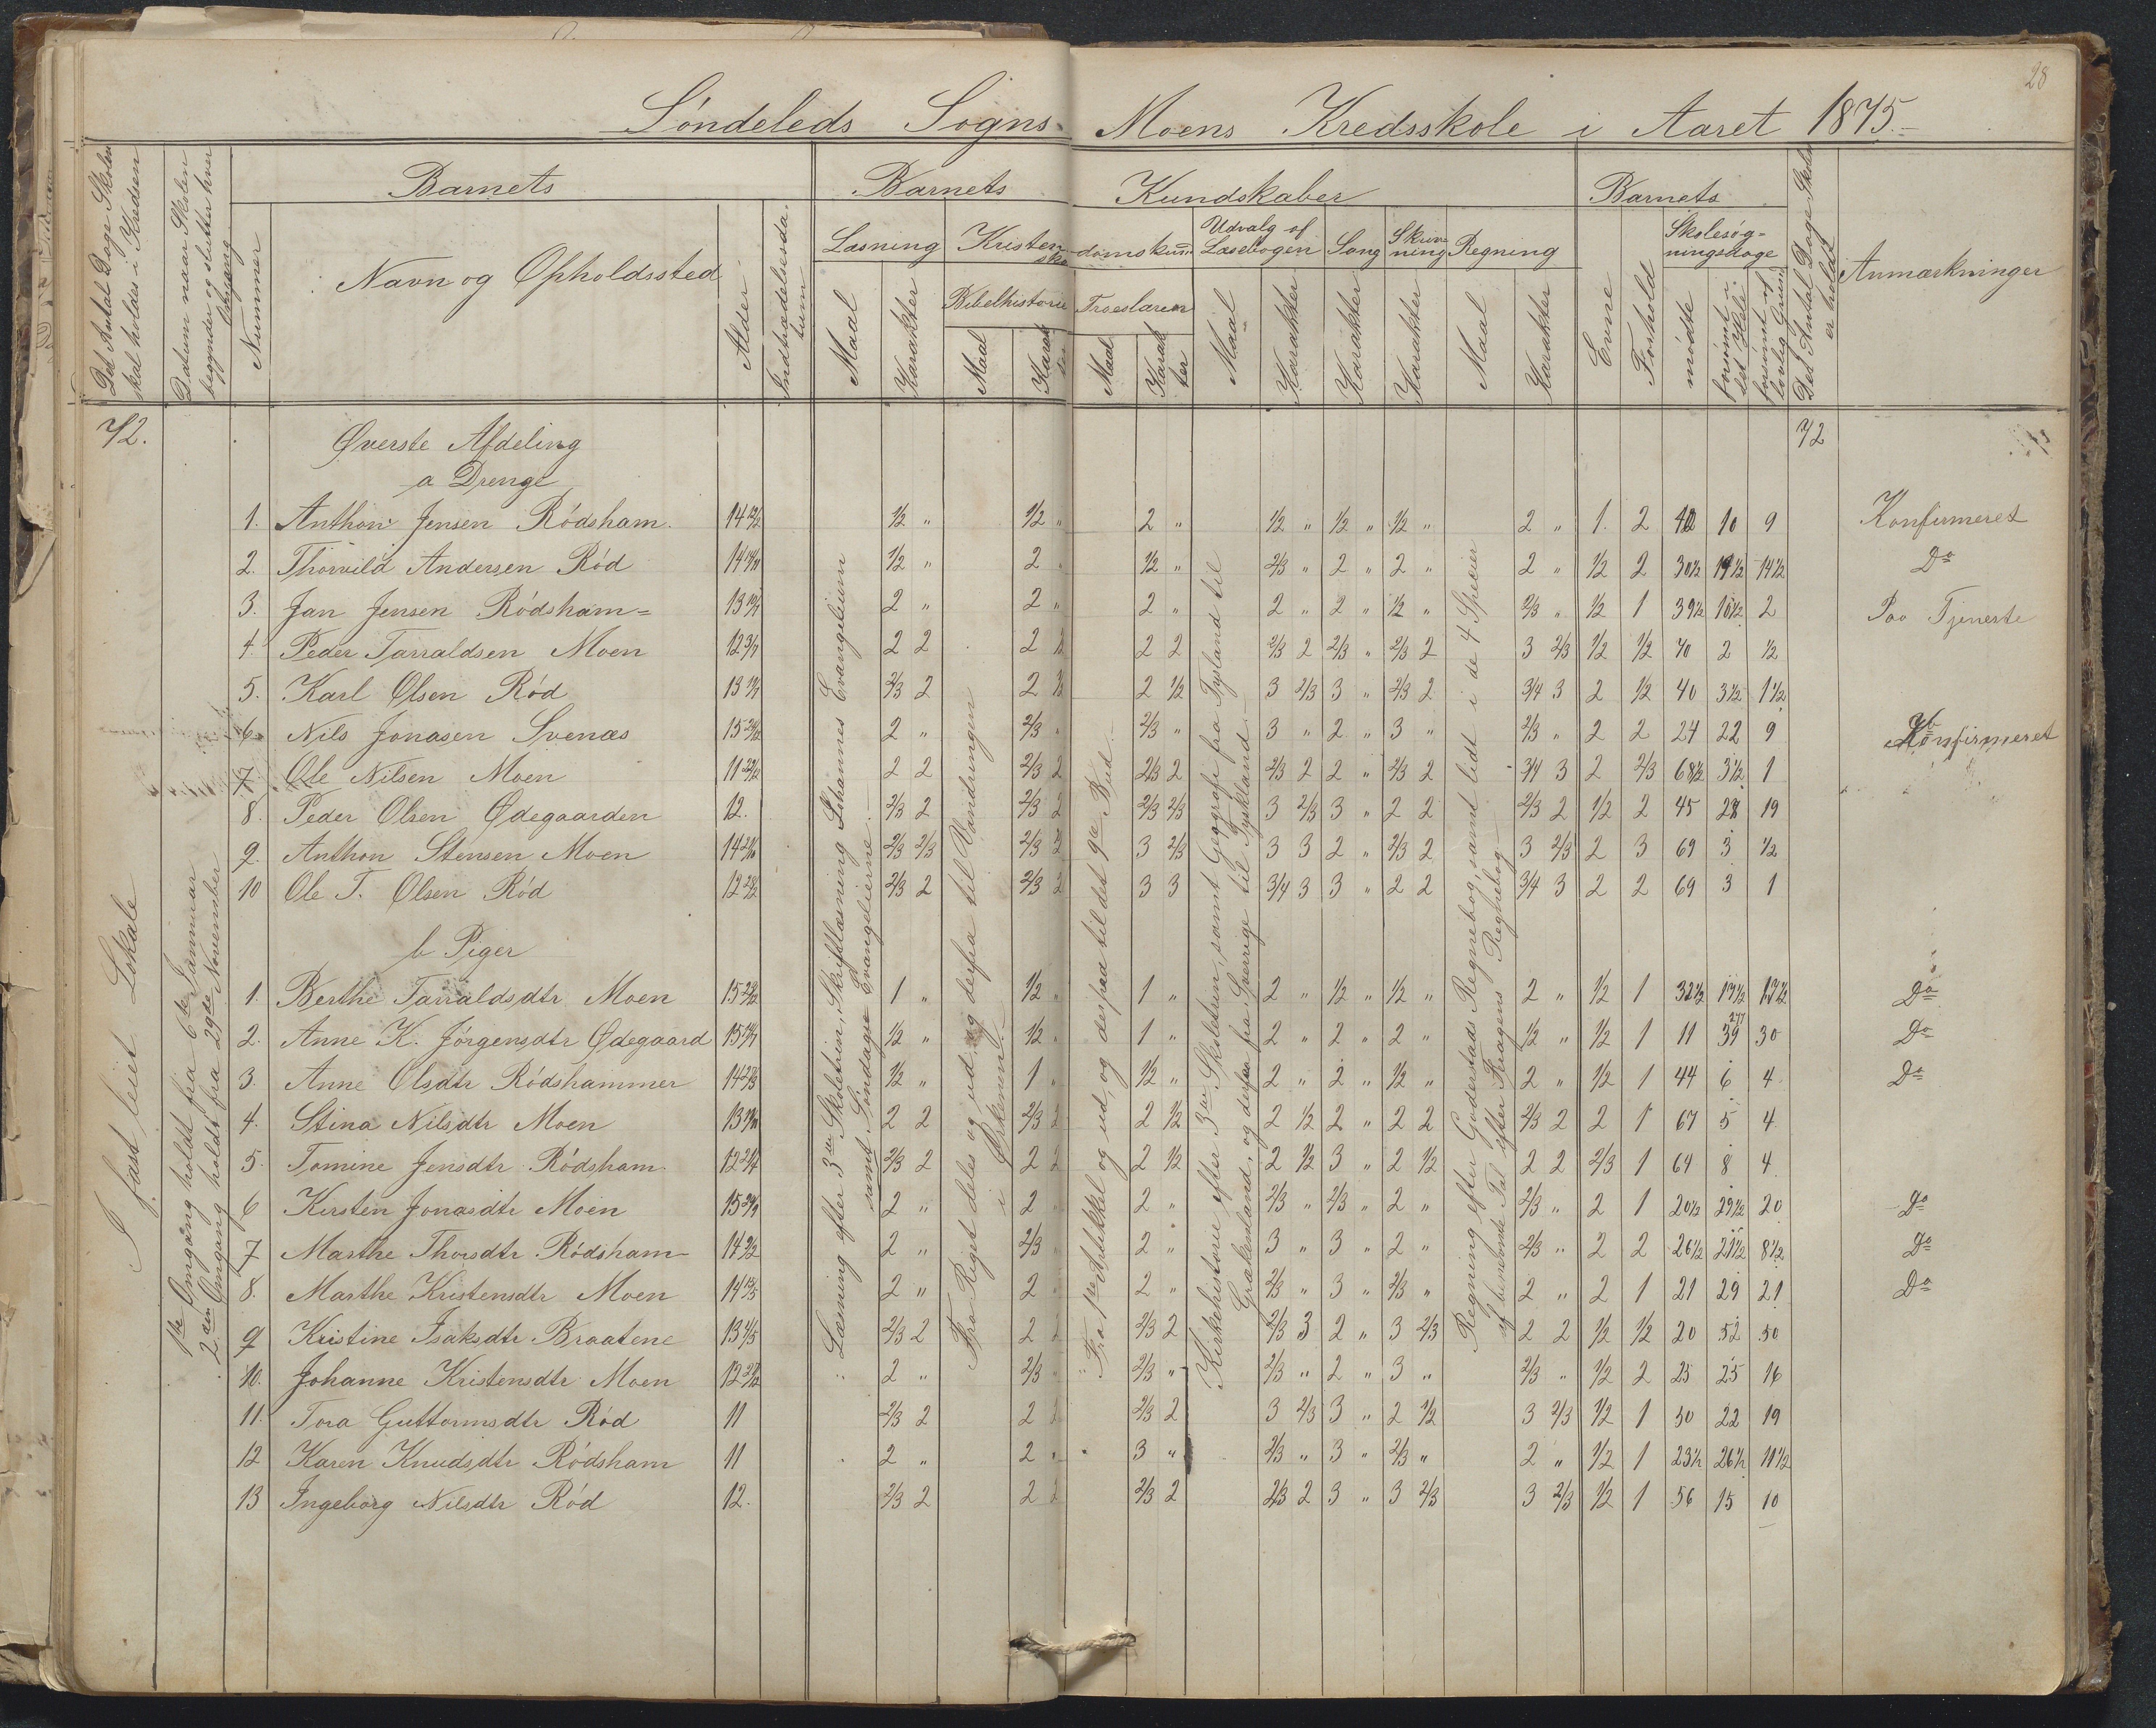 28
Söndeleds Sogns Moens Kredsskole i Aaret 1875.
Det Antal Dage Skolen skal holdes i Kredsen
Datum naar Skolen begynder og slutter hver Omgang
Barnets
Nummer
Navn og Opholdssted
Alder
Indtrædelsesdatum
Barnets Kundskaber
Læsning
Maal
Karakter
Kristendomskundskab
Bibelhistorie
Maal
Karakter
Troeslæren
Maal
Karakter
Udvalg af Læsebogen
Maal
Karakter
Sang
Karakter
Skrivning
Karakter
Regning
Maal
Karakter
Barnets
Evne
Forhold
Skolesøgningsdage
mødte
forsømt i det Hele
forsømt af lovlig Grund
Det Antal Dage Skolen er holdt
Anmærkninger
72.
72
I fast leiet Lokale
1ste Omgang holdt fra 6te Januar
2den Omgang holdt fra 29de November
Læsning efter 3die Skoletrin, Skriftlæsning Johannes Evangelium
samt Søndags Evangelierne.
Fra Riget deles og ud, og derfra til Vandringen
i Ørkenen.
Fra 1ste Artikkel og ud, og desuad til det 9de Bud.
Kirkehistorie efter 3die Skoletrin, samt Geografi fra Tyskland til
Grækenland, og derfra fra Sverrige til Tyskland.
Regning efter Goderstads Regnebog, samt lidt i de 4 Specier
af benævnte Tal efter Kragens Regnebog
Øverste Afdeling
a Drenge
1. Anthon Jensen Rödsham. 14 1/2 " 1/2 " 2 " 1/2 " 1/2 " 1/2 " 2 " 1. 2 42 10 9 Konfirmeret
2. Thorvild Andersen Röd 14 1/2 " 2 " 1/2 " 2/3 " 2 " 2 " 2 " 1/2 2 30 1/2 19 1/2 14 1/2 Do
3. Jan Jensen Rödsham 13 2 " 2 " 2 " 2 " 2 " 1/2 " 2/3 " 1/2 1 39 1/2 10 1/2 2 Paa Tjeneste
4. Peder Tarraldsen Moen 12 2 2 2 2 2 2/3 2 2/3 " 2/3 2 3 2/3 1/2 1/2 70 2 1/2
5. Karl Olsen Röd 13 2/3 2 2 2 1/2 3 2/3 3 " 2/3 2 3/4 3 2 1/2 40 3 1/2 1 1/2
6 Nils Jonasen Svenæs 15 2 " 2/3 " 2/3 " 3 " 2 " 3 " 2/3 " 2 2 24 22 9 Konfirmeret
7 Ole Nilsen Moen 11 2 2 2/3 2 2/3 2 2/3 2 2 " 2/3 2 3/4 3 2 2/3 68 1/2 3 1/2 1
8. Peder Olsen Ødegaarden 12. 2/3 2 2/3 2 2/3 2/3 3 2/3 3 " 2 2 2/3 2 1/2 2 45 28 19
9. Anthon Stensen Moen 14 2/3 2/3 2/3 2 3 2/3 3 3 2 " 2/3 2 3 2/3 2 3 69 3 1/2
10 Ole T. Olsen Röd 12 2/3 2 2/3 2 3 3 3/4 3 3 " 2 2 3/4 3 2 2 69 3 1
b Piger
1. Berthe Tarraldsdtr Moen 15 1 " 1/2 " 1 " 2 " 1/2 " 1/2 " 2 " 1/2 1 32 1/2 Do
2. Anne K. Jörgensdtr Ødegaard 15 1/2 " 1/2 " 1 " 2 " 2 " 2 " 1/2 " 1/2 1 11 39 30 Do
3. Anne Olsdtr Rödshammer 14 1/2 " 1 " 1/2 " 2 " 2 " 1/2 " 2 " 1/2 1 44 6 4 Do
4. Stina Nilsdtr Moen 13 2 2 2/3 2 2 1/2 2 1/2 2 " 2 2 2/3 2 2 1 67 5 4
5. Tomine Jensdtr Rödsham. 12 2/3 2 2 2 2 1/2 2 1/2 3 " 2 1/2 2 2 2/3 1 64 8 4
6 Kirsten Jonasdtr Moen 15 2 " 2 " 2 " 2/3 " 2/3 " 2 " 2/3 " 2 1 20 1/2 29 1/2 20 Do
7 Marthe Thorsdtr Rödsham 14 2 " 2/3 " 2 " 3 " 3 " 2 " 2/3 " 2 2 26 1/2 21 1/2 8 1/2 Do
8. Marthe Kristensdtr Moen 14 2 " 2 " 2 " 2/3 " 3 " 2/3 " 2 " 2 1 21 29 21 Do
9 Kristine Isaksdtr Braatene 13 2/3 2 2 2 2/3 2 2/3 3 2 " 3 2/3 2 2 1/2 1/2 20 52 50
10. Johanne Kristensdtr Moen 12 2 " 2/3 " 2/3 " 2/3 " 2 " 3 " 2/3 " 1/2 2 25 25 16
11. Tora Guttormsdtr Röd 11 2/3 2 2 2 2/3 2 3 2/3 3 " 2 1/2 3 2/3 1/2 1 50 22 19
12 Karen Knudsdtr Rödsham 11 2 " 2 " 3 " 2/3 " 3 " 2/3 " 2 " 1/2 1 23 1/2 26 1/2 11 1/2
13 Ingeborg Nilsdtr Röd 12. 2/3 2 2 2 2/3 2 2/3 2 3 " 3 2/3 3 2/3 1/2 1 56 15 10